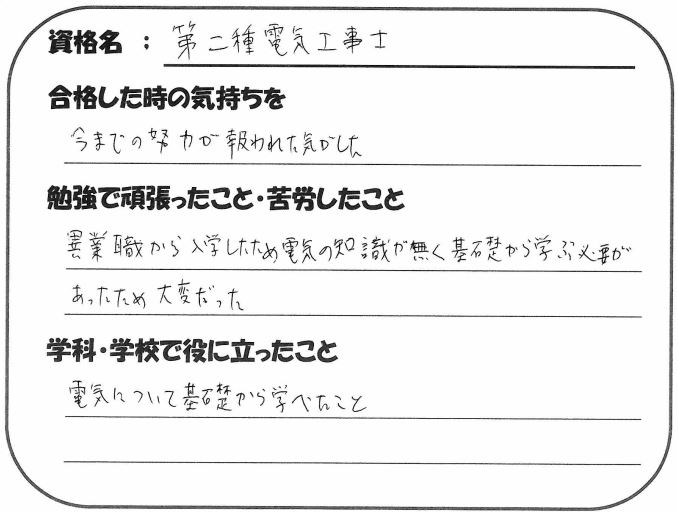 資格名 : 第二種電気工事士
合格した時の気持ちを
今までの努力が報われた気がした
勉強で頑張ったこと・苦労したこと
異業職から入学したため電気の知識が無く基礎から学ぶ必要が
あったため大変だった
学科・学校で役に立ったこと
電気について基礎から学べたこと